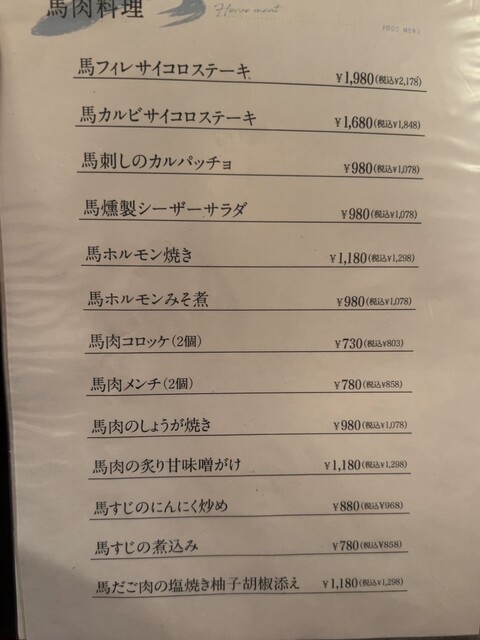 馬肉料理
Horse meat
FOOD MENU
馬フィレサイコロステーキ ¥1,980(税込¥2,178)
馬カルビサイコロステーキ ¥1,680(税込¥1,848)
馬刺しのカルパッチョ ¥980(税込¥1,078)
馬燻製シーザーサラダ ¥980(税込¥1,078)
馬ホルモン焼き ¥1,180(税込¥1,298)
馬ホルモンみそ煮 ¥980(税込¥1,078)
馬肉コロッケ(2個) ¥730(税込¥803)
馬肉メンチ(2個) ¥780(税込¥858)
馬肉のしょうが焼き ¥980(税込¥1,078)
馬肉の炙り甘味噌がけ ¥1,180(税込¥1,298)
馬すじのにんにく炒め ¥880(税込¥968)
馬すじの煮込み ¥780(税込¥858)
馬だご肉の塩焼き柚子胡椒添え ¥1,180(税込¥1,298)